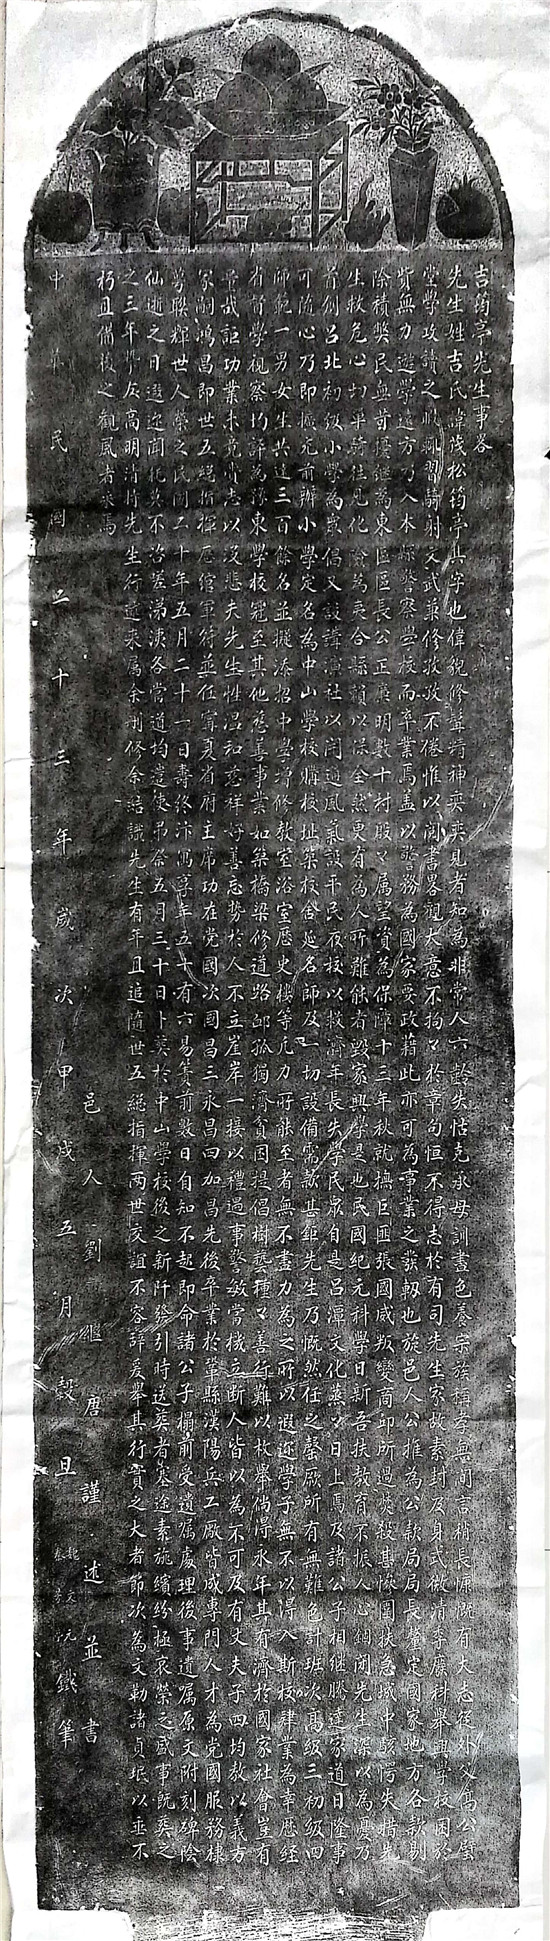 吉筠亭先生事畧
先生姓吉氏諱茂松筠亭其字也偉貌修髯精神奕奕見者知為非常人六齡失怙克承母訓晝色養宗族稱孝無間言稍長慷慨有大志從外父馬公瑩
堂學攻讀之暇輒習騎射文武兼修孜孜不倦惟以閱書畧觀大意不拘々於章句恒不得志於有司先生家故素封及身式微清季廢科舉興學校困於
貲無力遊學遠方乃入本縣警察學校而卒業焉蓋以警務為國家要政藉此亦可為事業之發軔也旋邑人公推為公款局局長釐定國家地方各款剔
除積弊民無苛擾繼為東區區長公正廉明數十村殷々属望資為保障十三年秋就撫巨匪張國威叛變商邱所過焚殺甚慘圍扶急城中駭愕失措先
生救危心切單騎往見化險為夷合縣賴以保全然更有為人所難能者毀家興學是也民國紀元科學日新吾扶教育不振人心錮閉先生深以為憂乃
首創呂北初級小學為眾倡又設講演社以開通風氣設平民夜校以救濟年長失學民眾自是呂潭文化蒸々日上焉及諸公子相繼騰達家道日隆事
可隨心乃即擴充前辦小學定名為中山學校購校址築校舍延名師及一切設備需款甚鉅先生乃慨然任之罄厥所有無難色計班次高級三初級四
師範一男女生共達三百餘名並擬添招中學增修教室浴室歷史樓等凡力所能至者無不盡力為之所以遐迩學子無不以得入斯校肄業為幸歷經
省督學視察均評為豫東學校冠至其他慈善事業如築橋梁修道路卹孤獨濟貧困提倡樹藝種々善行難以枚舉倘得永年其有濟於國家社會豈有
量哉詎功業未竟賫志以沒悲夫先生性温和慈祥好善忘勢於人不立崖岸一接以禮遇事警敏當機立断人皆以為不可及有丈夫子四均教以義方
家嗣鴻昌即世五總指揮歷綰軍符並任寧夏省府主席功在党國次國昌三永昌四加昌先後卒業於鞏縣漢陽兵工廠皆成專門人才為党國服務棣
萼聯輝世人榮之民國二十年五月二十一日壽終汴寓享年五十有六易簀前數日自知不起即命諸公子榻前受遺嘱處理後事遺嘱原文附刻碑陰
仙逝之日遐迩聞耗莫不咨嗟涕洟各當道均遣使弔祭五月三十日卜葬於中山學校後之新阡發引時送葬者塞途素旐繽紛極哀榮之盛事既葬之
之三年學友高明清持先生行述來属余刊修余結識先生有年且追隨世五總指揮兩世交誼不容辞爰舉其行實之大者節次為文勒諸貞珉以垂不
朽且備後之觀風者采焉
邑人劉繼唐謹述並書
中華民國二十三年歲次甲戌五月穀旦
鐵筆